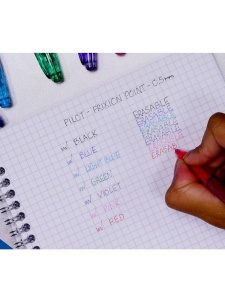 PILOT - FRIXION POINT - 0.5mm
BLACK ERASABLE
BLUE ERASABLE
LIGHT BLUE ERASABLE
GREEN ERASABLE
VIOLET ERASABLE
PINK ERASABLE
RED ERASA